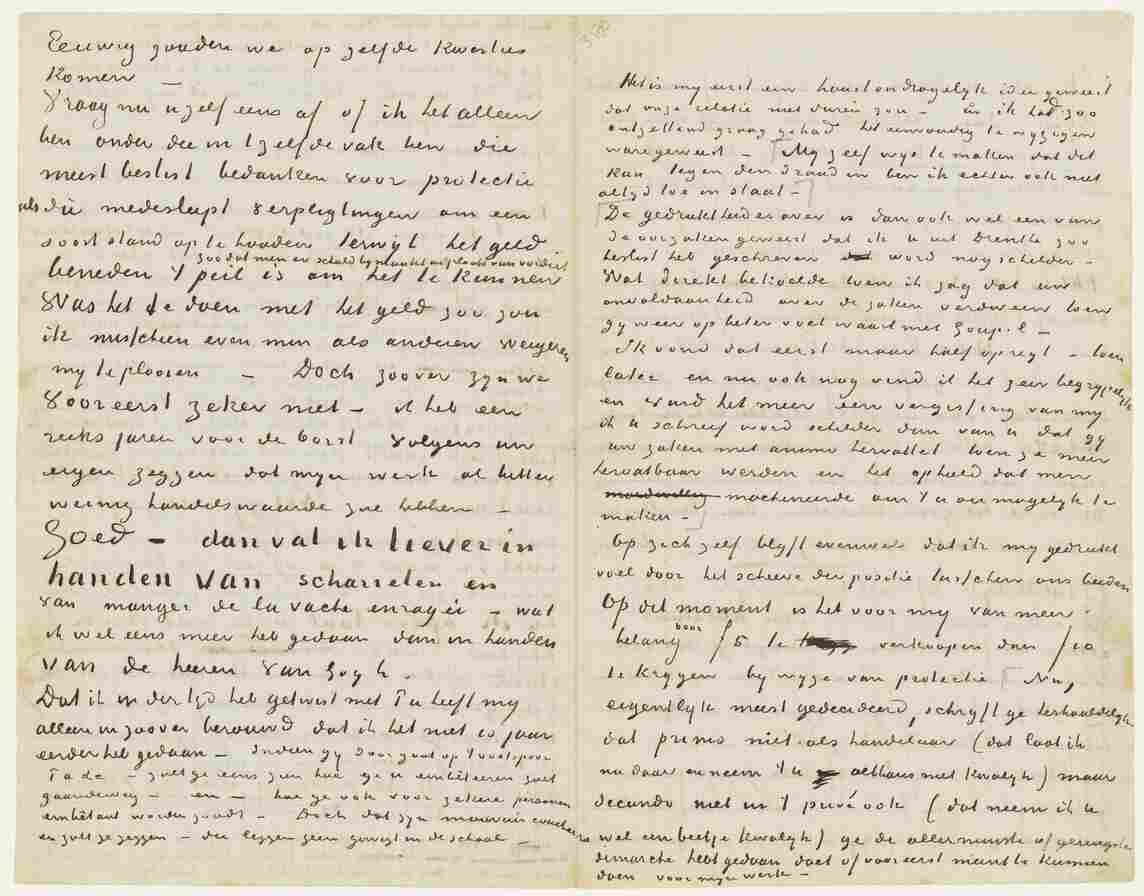 Eeuwig zouden we op zelfde kwesties
komen —
Vraag nu uzelf eens af of ik het alleen
ben onder die in 't zelfde vak ben die
meest beslist bedanken voor protectie
als die medesleept verpligtingen om een
soort stand op te houden terwijl het geld
zoo dat men er schuld bij maakt in plaats van verdient
beneden 't peil is om het te kunnen
Was het te doen met het geld zoo zou
ik misschien even min als anderen weigeren
my te plooien — Doch zoover zyn we
vooreerst zeker niet — ik heb een
reeks jaren voor de borst volgens uw
eigen zeggen dat myn werk al
weinig handelswaarde zou hebben —
Goed — dan val ik liever in
handen van scharrelen en
van manger de la vache enragée — wat
ik wel eens meer heb gedaan dan in handen
van de heeren van Gogh.
Dat ik in der tyd heb getwist met Pa heeft my
alleen in zoover berouwd dat ik het niet 10 jaar
eerder heb gedaan — Indien gy doorgaat op 't voetspoor
Pa &c — zult ge eens zien hoe ge u embêteeren zult
gaandeweg — en — hoe ge ook voor zekere personen
embêtant worden zoudt — Doch dat zyn mauvais coucheurs
en zult ge zeggen — die leggen geen gewigt in de schaal —
358
Het is my eerst een haast ondragelyk idee geweest
dat onze relatie niet duren zou — en ik had zoo
ontzettend graag gehad het eenvoudig te wyzigen
ware geweest — My zelf wys te maken dat dit
kan tegen den draad in ben ik echter ook niet
altyd toe in staat —
De gedruktheid er over is dan ook wel een van
de oorzaken geweest dat ik u uit Drenthe zoo
beslist heb geschreven word nog schilder —
Wat direkt bekoelde toen ik zag dat uw
onvoldaanheid over de zaken verdween toen
gy weer op beter voet waart met Goupil —
Ik vond dat eerst maar half opregt — toen
later en nu ook nog vind ik het zeer begrypelyk
en vond het meer een vergissing van my
ik u schreef word schilder dan van u dat gy
uw zaken met animo hervattet toen ze meer
hervatbaar werden en het ophield dat men
machineerde om 't u onmogelyk te
maken —
Op zich zelf blyft evenwel dat ik my gedrukt
voel door het scheeve der positie tusschen ons beiden
Op dit moment is het voor my van meer
belang voor f 5 te verkoopen dan f 10
te krygen by wyze van protectie Nu,
eigentlyk meest gedecideerd, schryft ge herhaaldelyk
dat primo niet als handelaar (dat laat ik
nu daar en neem 't u althans niet kwalyk) maar
secundo niet in 't privé ook (dat neem ik u
wel een beetje kwalyk) ge de allerminste of geringste
demarche hebt gedaan doet of vooreerst meent te kunnen
doen voor myn werk —